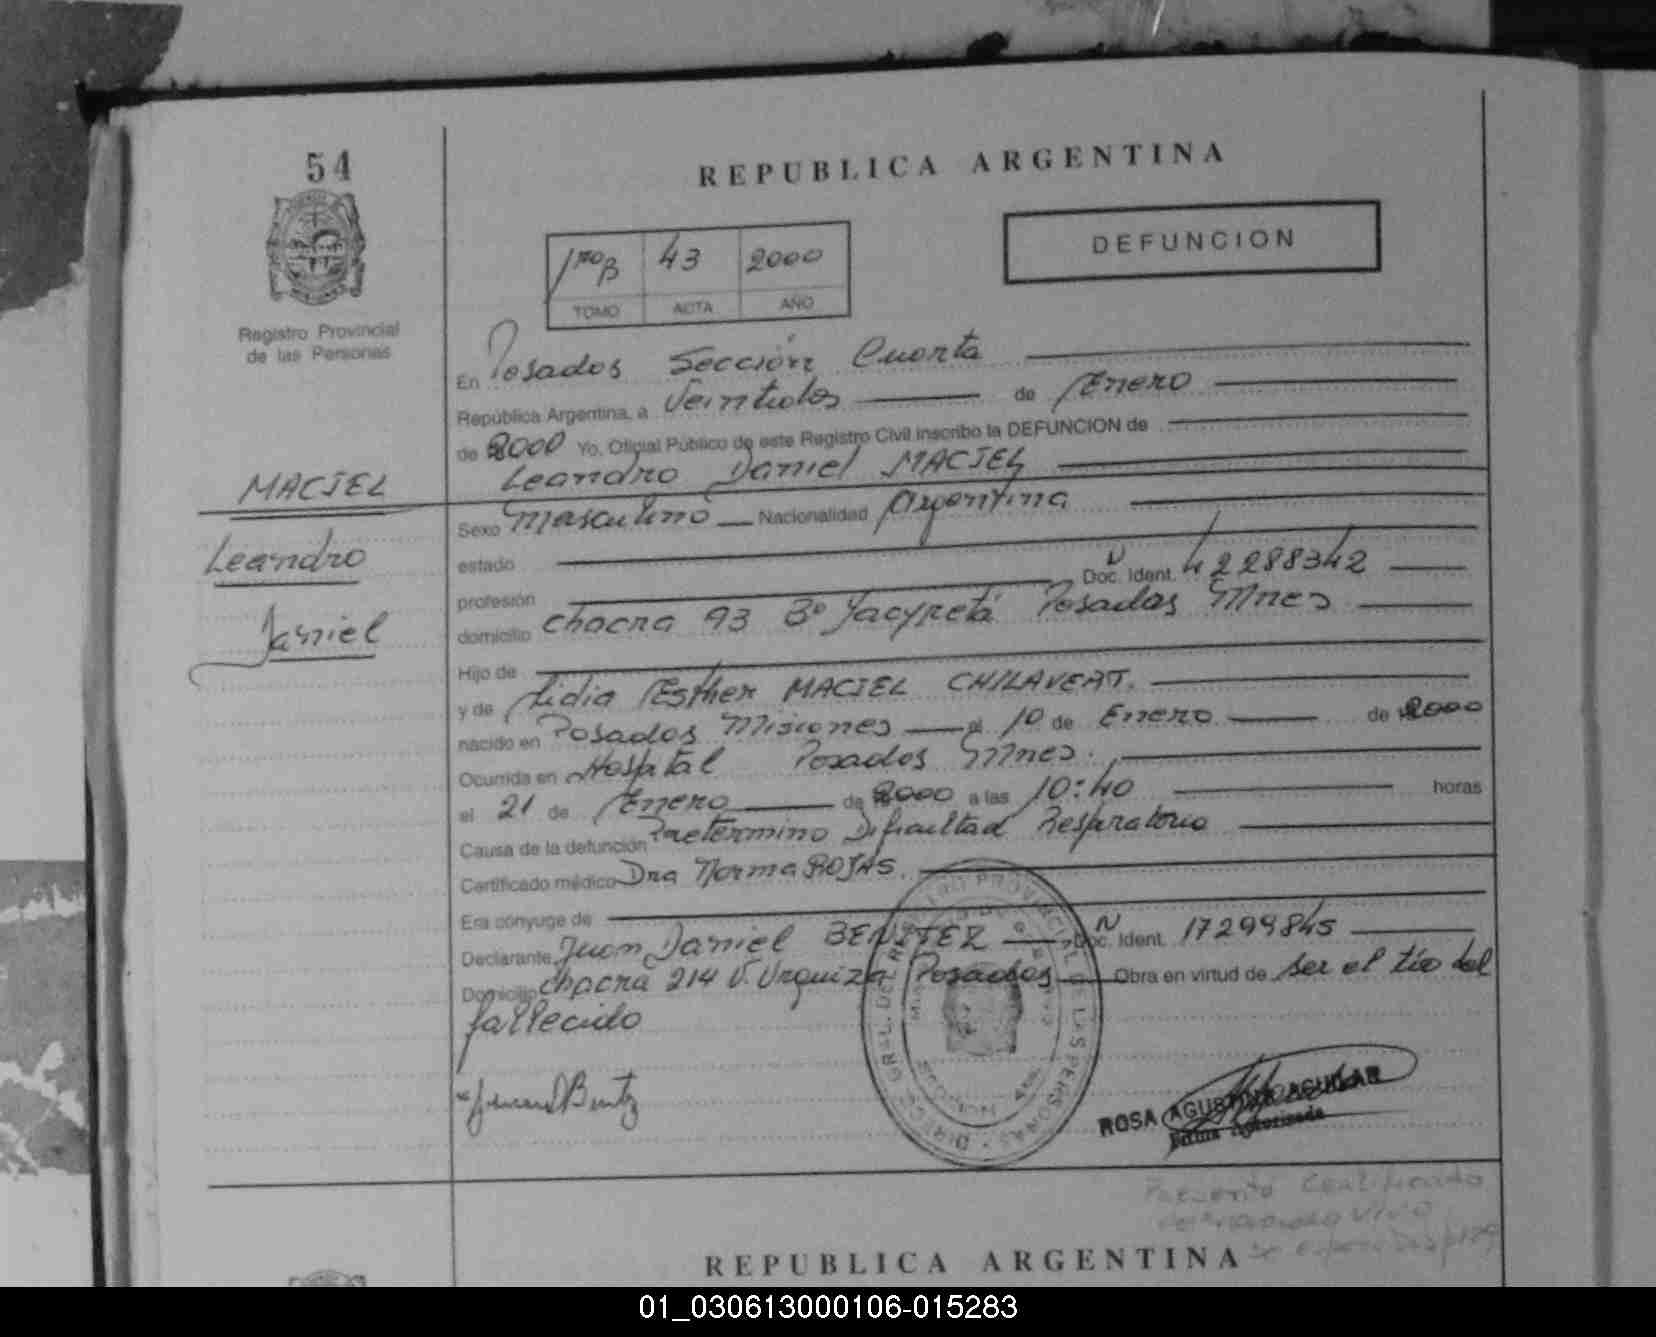 54
REPUBLICA ARGENTINA
DEFUNCION
1ro B 43 2000
TOMO ACTA AÑO
Registro Provincial
de las Personas
En Posadas Sección Cuarta
República Argentina, a Veintidos de Enero
de 2000 Yo, Oficial Público de este Registro Civil inscribo la DEFUNCION de
Leandro Daniel MACIEL
MACIEL
Leandro
Daniel
Sexo Masculino Nacionalidad Argentina
estado
profesión Doc. Ident. N 42288342
domicilio Chacra 93 Bº Yacyretá Posadas Mnes
Hijo de
y de Lidia Esther MACIEL CHILAVERT.
nacido en Posadas Misiones el 10 de Enero de 2000
Ocurrida en Hospital Posadas Mnes.
el 21 de Enero de 2000 a las 10:40 horas
Causa de la defunción Pretermino Dificultad Respiratoria
Certificado médico Dra Norma ROJAS.
Era cónyuge de
Declarante Juan Daniel BENITEZ Doc. Ident. N 17299845
Domicilio Chacra 214 V. Urquiza Posadas Obra en virtud de ser el tío del
fallecido
ROSA AGUSTINA AGUILAR
Firma Autorizada
Presentó Certificado
REPUBLICA ARGENTINA
01_030613000106-015283